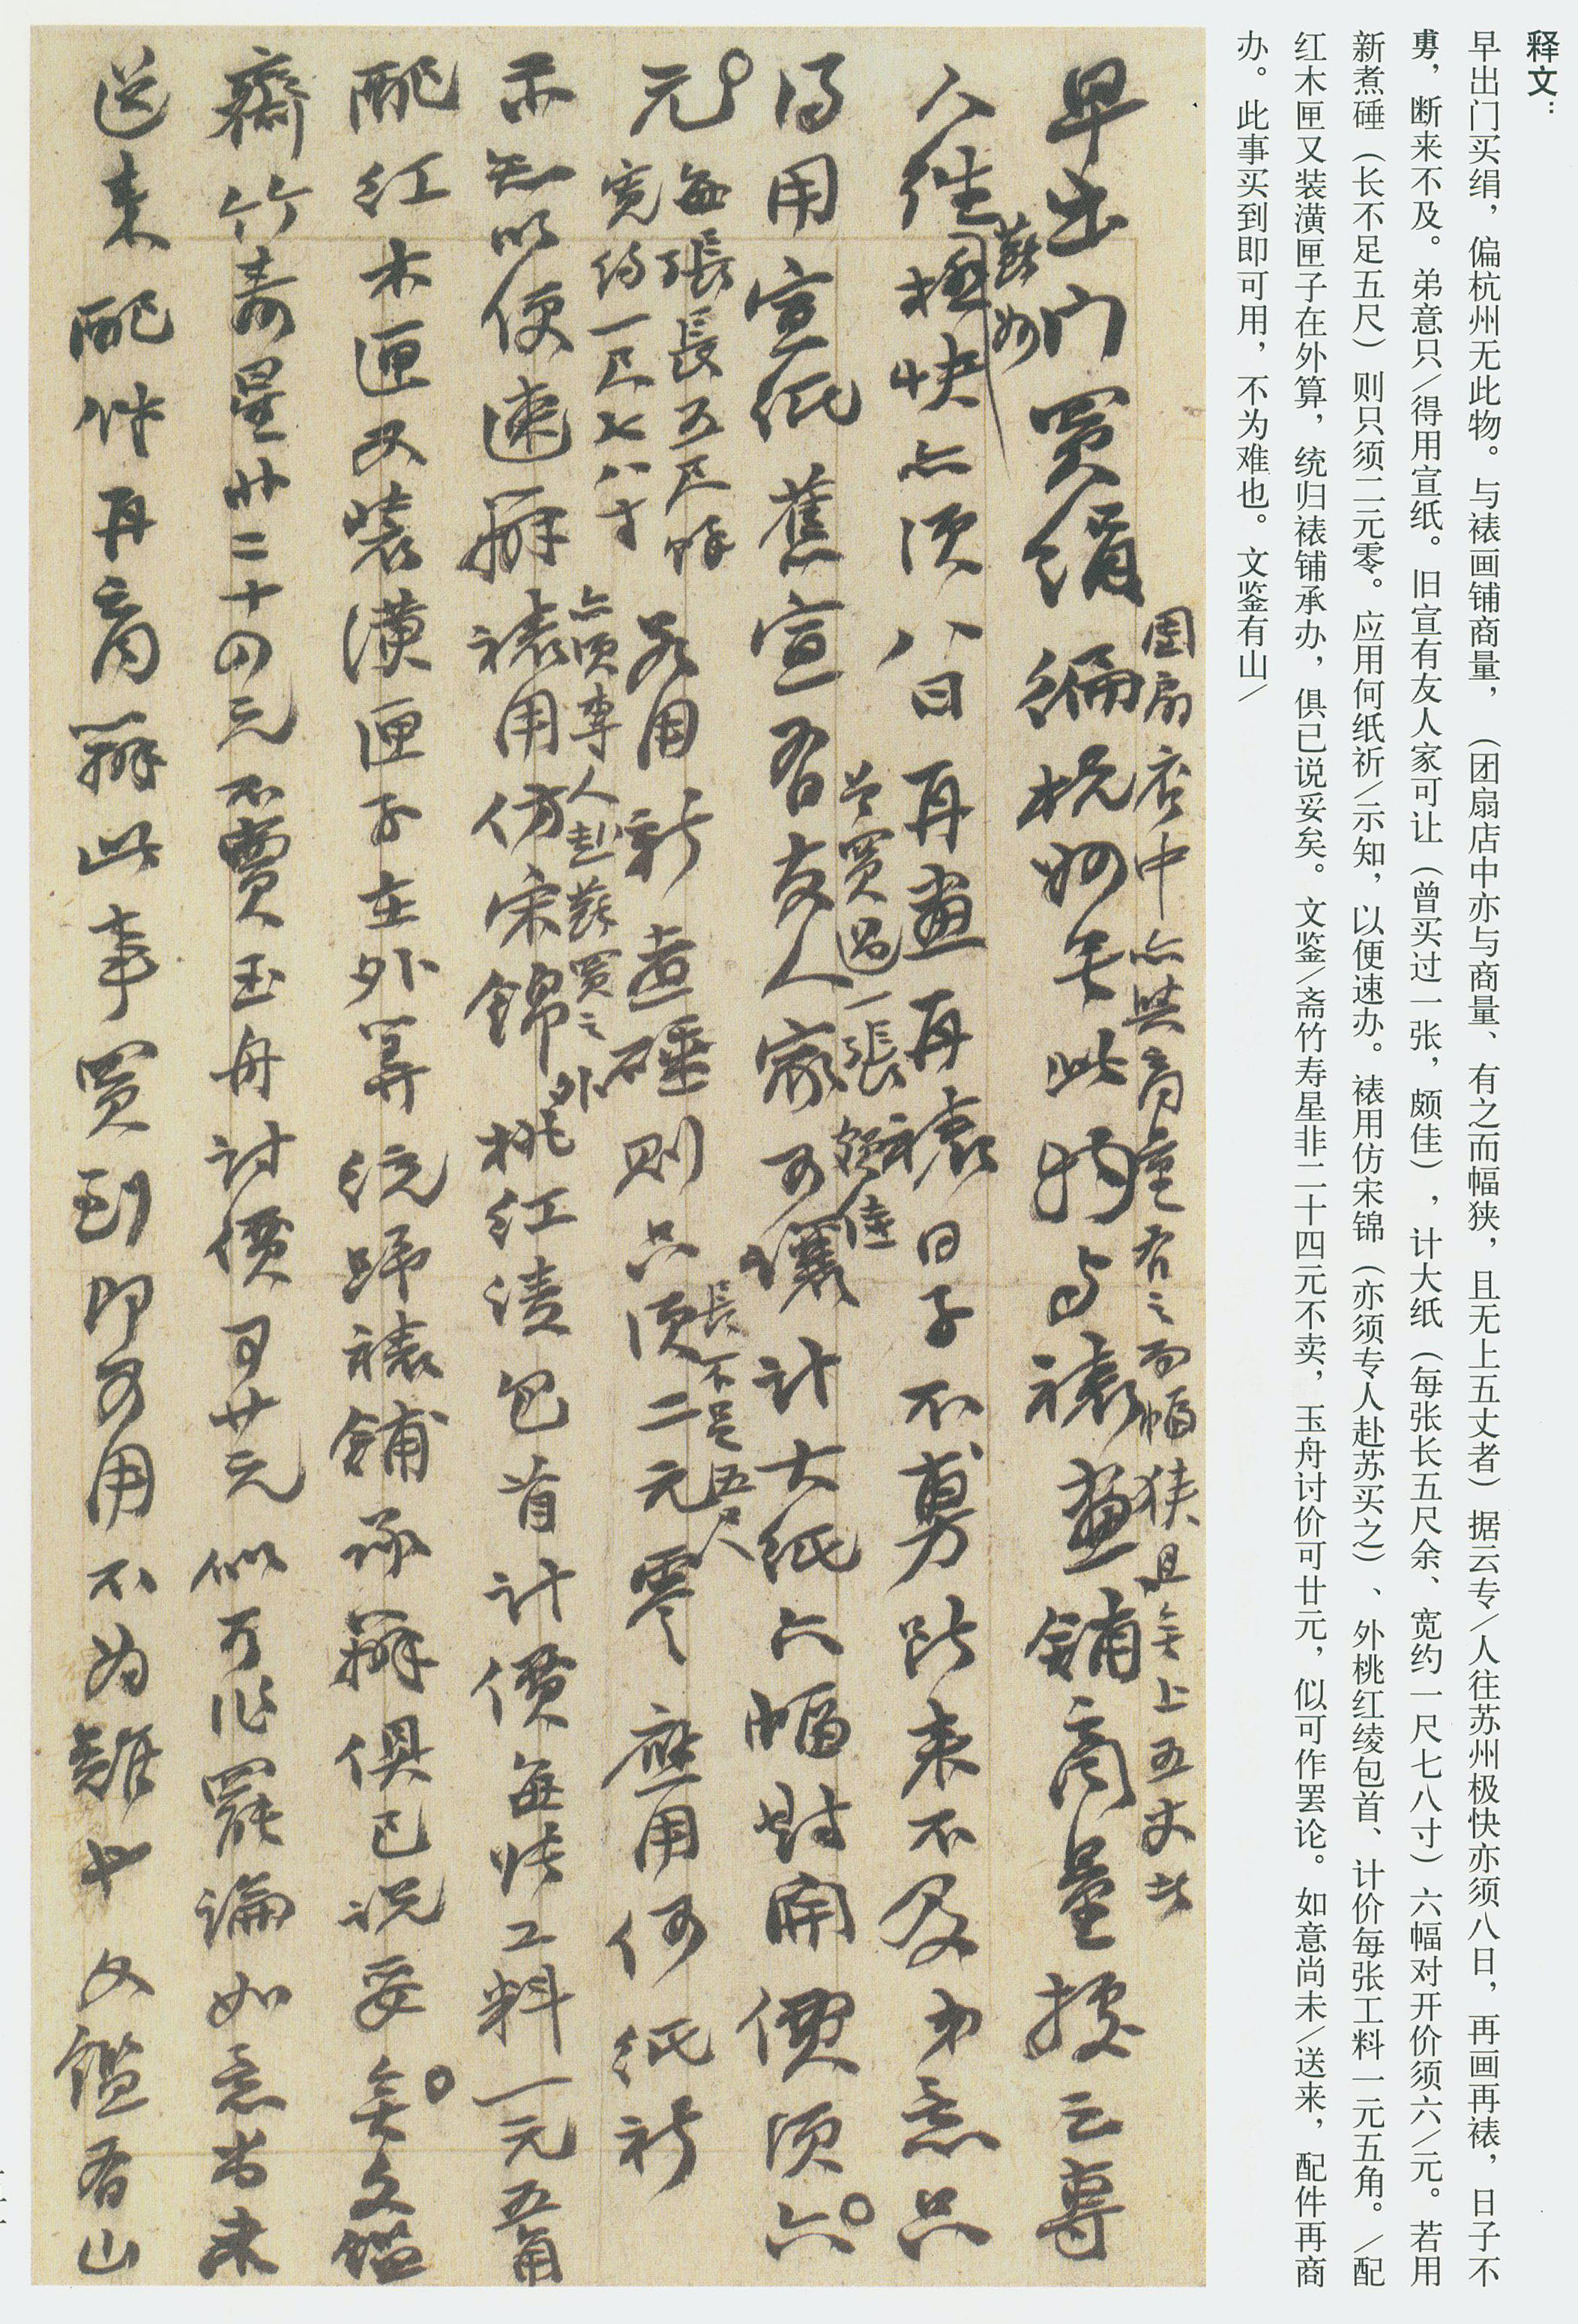 释文：
早出门买绢，偏杭州无此物。与裱画铺商量，（团扇店中亦与商量、有之而幅狭，且无上五丈者）据云专／人往苏州极快亦须八日，再画再裱，日子不
勇，断来不及。弟意只／得用宣纸。旧宣有友人家可让（曾头过一张，颇佳），计大纸（每张长五尺余、宽约一尺七八寸）六幅对开价须六／元。若用
新煮硾（长不足五尺）则只须二元零。应用何纸祈／示知，以便速办。裱用仿宋锦（亦须专人赴苏买之）、外桃红绫包首、计价每张工料一元五角。／配
红木匣又装潢匣子在外算，统归裱铺承办，俱已说妥矣。文鉴／斋竹寿星非二十四元不卖，玉舟讨价可廿元，似可作罢论。如意尚未／送来，配件再商
办。此事买到即可用，不为难也。文鉴有山／
早出门買絹偏杭州無此物与裱畫鋪商量據云專
團扇店中亦與商量有之而幅狭且無上五丈者
人往極快亦須八日再畫再裱日子不勇断来不及弟意只
蘇州
得用宣紙舊宣有友人家可讓計大紙六幅對開價須六
曾買過一張頗佳
元若用新煮硾則只須二元零應用何紙祈
每張長五尺餘
寬約一尺七八寸
長不足五尺
示知以便速辦裱用仿宋錦桃紅綾包首計價每張工料一元五角
亦須專人赴蘇買之
外
配紅木匣又装潢匣子在外算統歸裱鋪承辦俱已说妥矣文鑑
齋竹壽星非二十四元不賣玉舟討價可廿元似可作罷論如意尚未
送来配件再商辦此事買到即可用不為難也文鑑有山